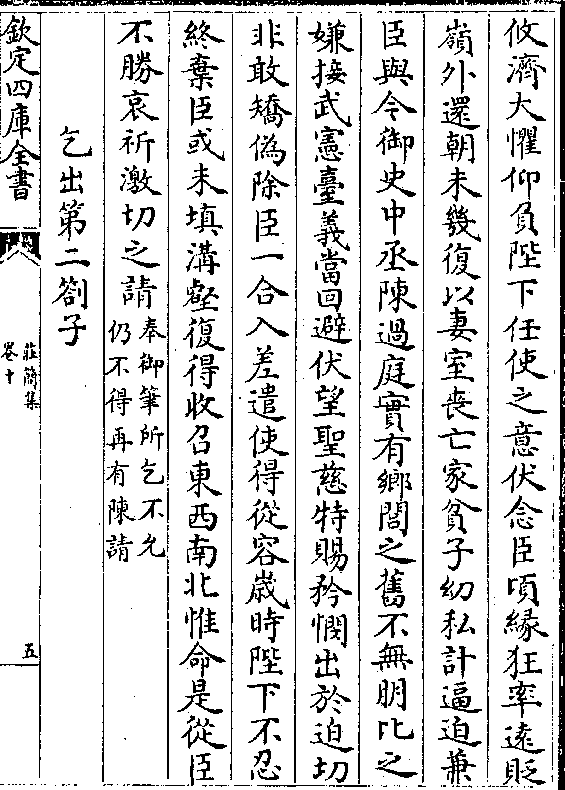 攸濟大懼仰負陛下任使之意伏念臣頃緣狂率遠貶
嶺外還朝未幾復以妻室喪亡家貧子幼私計逼迫兼
臣與令御史中丞陳過庭實有鄉閭之舊不無朋比之
嫌接武憲臺義當回避伏望聖慈特賜矜憫出於迫切
非敢矯偽除臣一合入差遣使得從容歲時陛下不忍
終棄臣或未填溝壑復得收召東西南北惟命是從臣
不勝哀祈激切之請
奉御筆所乞不允
仍不得再有陳請
乞出第二劄子
欽定四庫全書
莊簡集
卷十
五